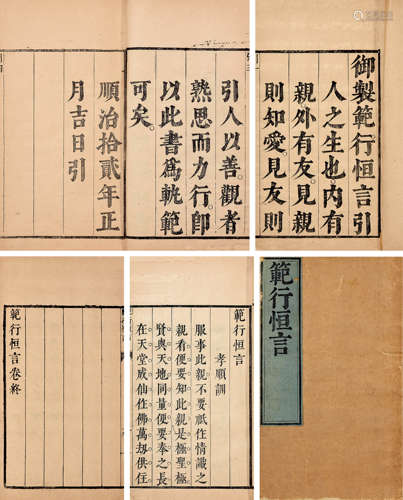 御製範行恒言引
人之生也。內有
親。外有友。見親
則知愛。見友則
引人以善。觀者
熟思而力行。即
以此書爲軌範
可矣。
順治拾貳年正
月吉日引
範行恒言
範行恒言
孝順訓
服事此親不要祇作情識之
親看便要知此親是極聖極
賢與天地同量便要奉之長
在天堂成仙作佛萬劫供
範行恒言
範行恒言卷終